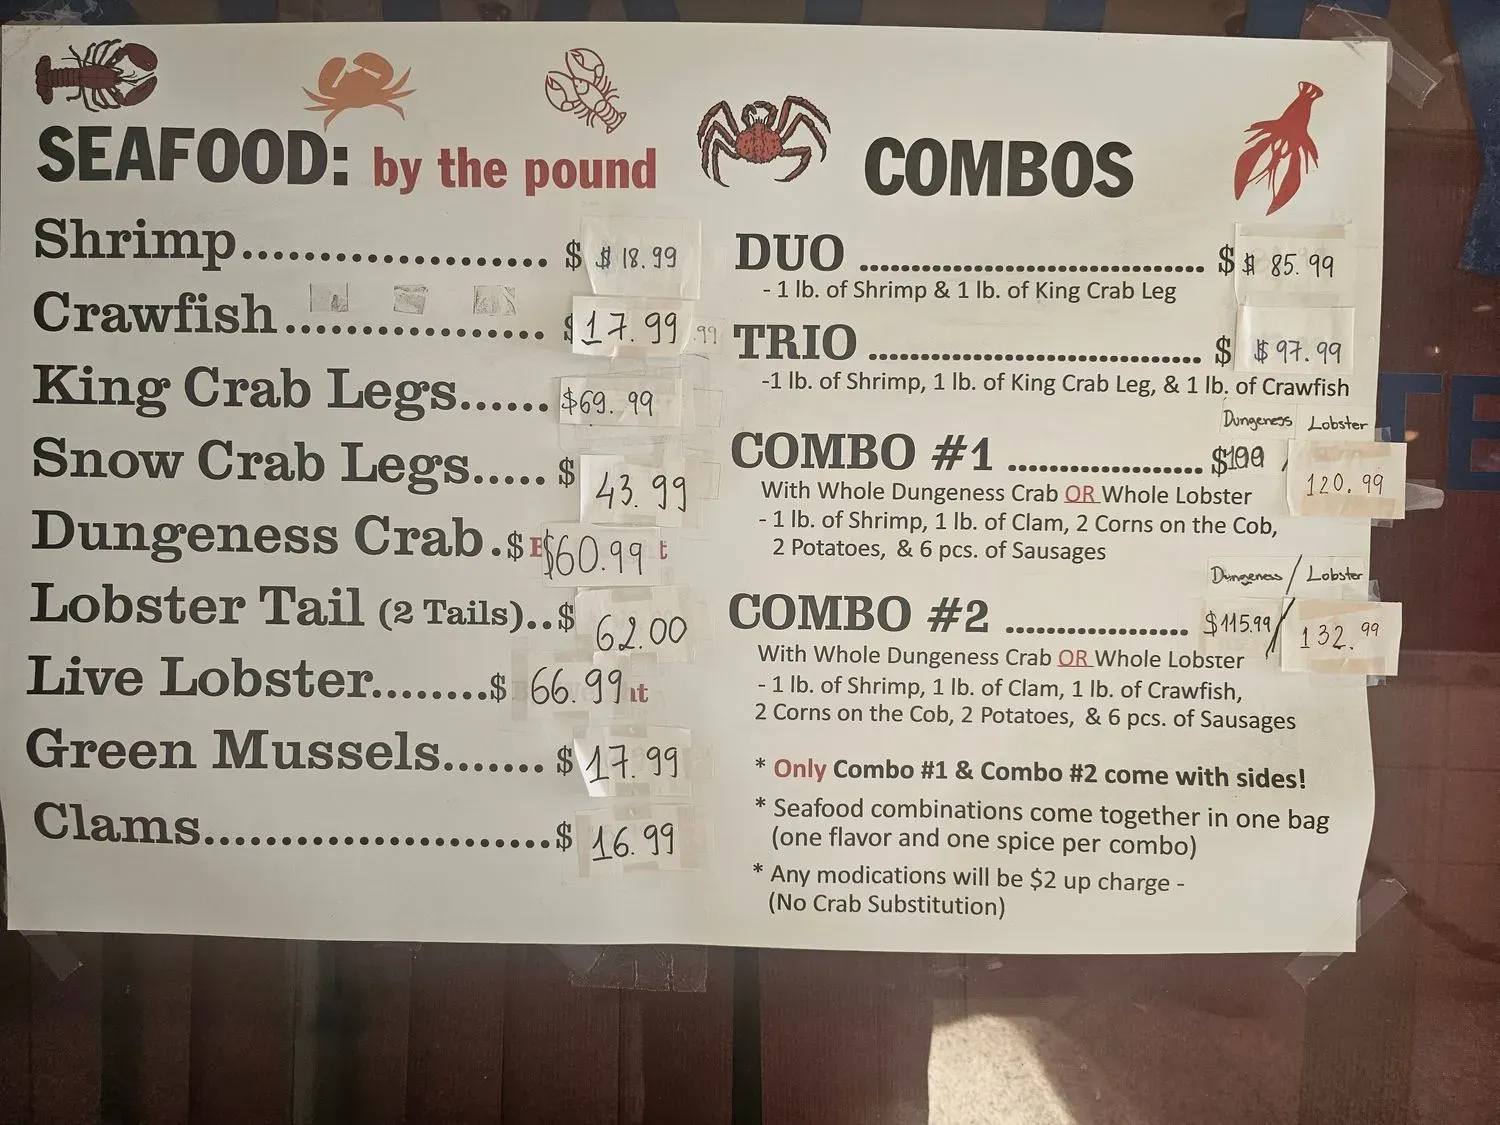 SEAFOOD: by the pound
Shrimp.................... $ $18.99
Crawfish................. $ 17.99 .99
King Crab Legs...... $69.99
Snow Crab Legs..... $ 43.99
Dungeness Crab.$ $60.99 t
Lobster Tail (2 Tails)..$ 62.00
Live Lobster........$ 66.99 nt
Green Mussels....... $ 17.99
Clams.......................$ 16.99
COMBOS
DUO ................................. $ $85.99
- 1 lb. of Shrimp & 1 lb. of King Crab Leg
TRIO ................................ $ $97.99
-1 lb. of Shrimp, 1 lb. of King Crab Leg, & 1 lb. of Crawfish
Dungeness Lobster
COMBO #1 ................... / 120.99
With Whole Dungeness Crab OR Whole Lobster
- 1 lb. of Shrimp, 1 lb. of Clam, 2 Corns on the Cob,
2 Potatoes, & 6 pcs. of Sausages
Dungeness / Lobster
COMBO #2 .................. $115.99 / 132.99
With Whole Dungeness Crab OR Whole Lobster
- 1 lb. of Shrimp, 1 lb. of Clam, 1 lb. of Crawfish,
2 Corns on the Cob, 2 Potatoes, & 6 pcs. of Sausages
* Only Combo #1 & Combo #2 come with sides!
* Seafood combinations come together in one bag
(one flavor and one spice per combo)
* Any modications will be $2 up charge -
(No Crab Substitution)
TE